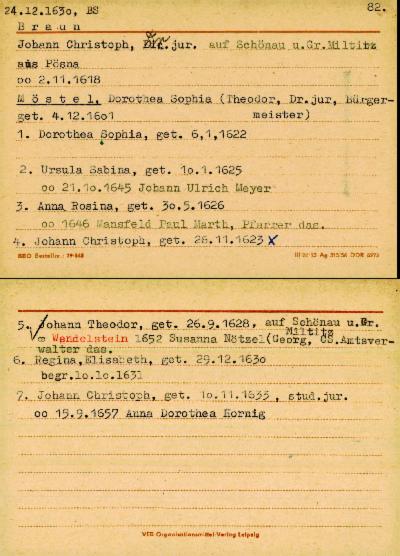 24.12.1630, BS
82.
B r a u n
Johann Christoph, Dr. jur. auf Schönau u.Gr.Miltitz
aus Pösna
oo 2.11.1618
M ö s t e l, Dorothea Sophia (Theodor, Dr.jur, Bürger-
get. 4.12.1601 meister)
1. Dorothea Sophia, get. 6,1,1622
2. Ursula Sabina, get. 1o.1.1625
oo 21.1o.1645 Johann Ulrich Meyer
3. Anna Rosina, get. 3o.5.1626
oo 1646 Mansfeld Paul Marth, Pfarrer das.
4. Johann Christoph, get. 28.11.1623 x
VEB Organisationsmittel-Verlag Leipzig
5. Johann Theodor, get. 26.9.1628, auf Schönau u.Gr.
Miltitz
∞ Wendelstein 1652 Susanna Nötzel(Georg, CS.Amtsver-
walter das.
6. Regina,Elisabeth, get. 29.12.163o
begr.1o.1o.1631
7. Johann Christoph, get. 1o.11.1633, stud.jur.
oo 15.9.1657 Anna Dorothea Hornig